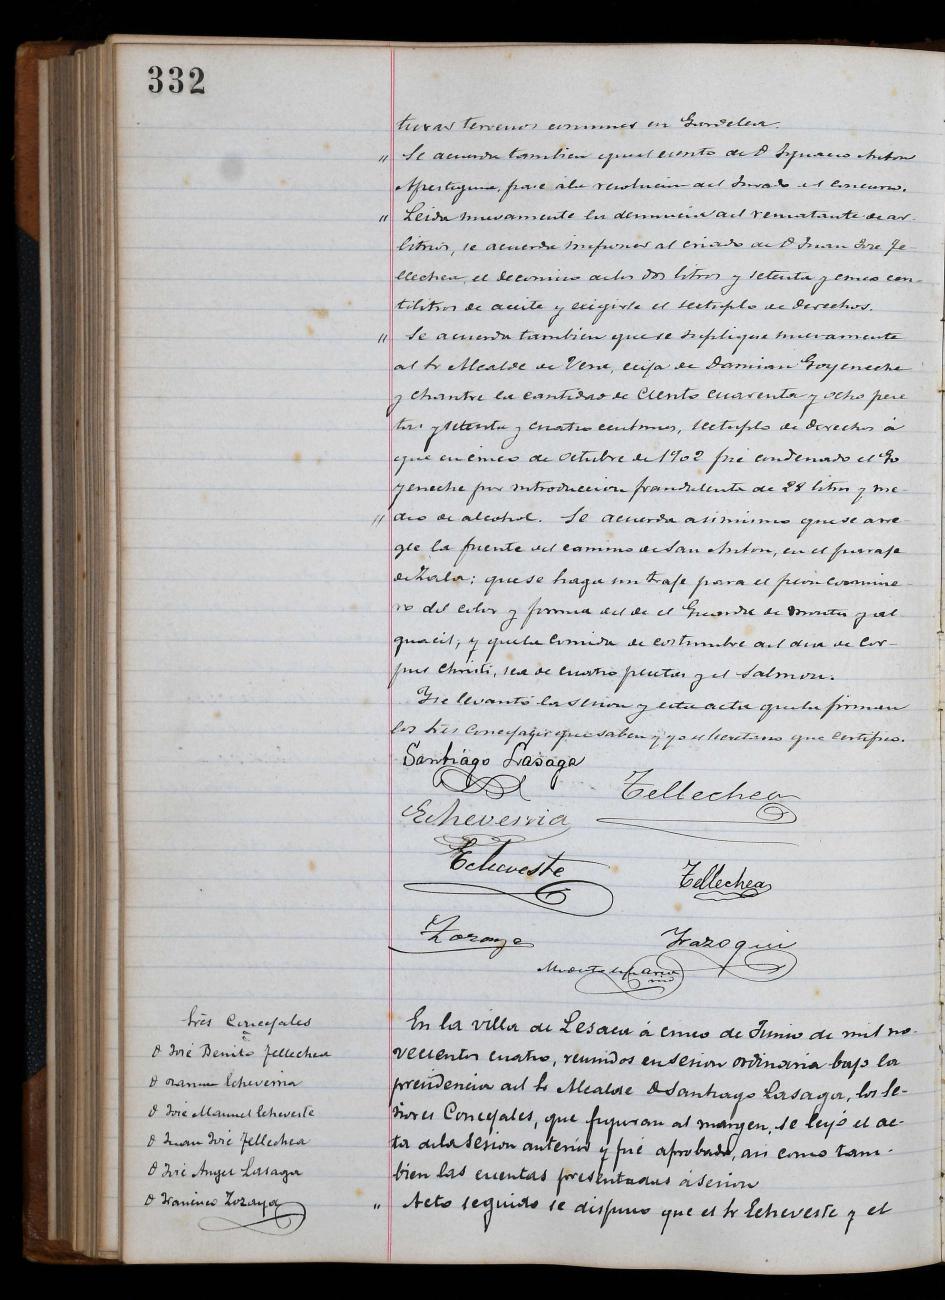 332
turas terrenos comunes en Garcelea.
" Se acuerda tambien que el escrito de D Ignacio Anton
Apesteguia, pase á la resolucion del Jurado el concurso.
" Leida nuevamente la denuncia del rematante de ar-
bitrios, se acuerda imponer al criado de D Juan José Te-
llechea, el decomiso de los dos litros y setenta y cinco cen-
tilitros de aceite y exigirle el séxtuplo de derechos.
" Se acuerda tambien que se suplique nuevamente
al Sr Alcalde de Vera, exija de Damian Goyeneche
y Chantre la cantidad de Ciento cuarenta y ocho pese
tas y setenta y cuatro centimos, séxtuplo de derechos á
que en cinco de Octubre de 1902 fué condenado el Go
yeneche por introduccion fraudulenta de 28 litros y me-
" dio de alcohol. Se acuerda asimismo que se arre-
gle la fuente del camino de San Anton, en el paraje
de Zala; que se haga un traje para el peon camine-
ro del color y forma del de el Guarda de montes y al-
guacil; y que la comida de costumbre del dia de Cor-
pus Christi, sea de cuatro pesetas y el Salmon.
Y se levantó la sesion y esta acta que la firman
los Sres Concejales que saben y yo el Secretario que certifico.
Santiago Lasaga
Tellechea
Echeverria
Echeveste
Tellechea
Zozaya
Irazoqui
tres Concejales
D José Benito Tellechea
D Ramon Echeverria
D José Manuel Echeveste
D Juan José Tellechea
D José Angel Lasaga
D Francisco Zozaya
En la villa de Lesaca á cinco de Junio de mil no-
vecientos cuatro, reunidos en sesion ordinaria bajo la
presidencia del Sr Alcalde D Santiago Lasaga, los Se-
ñores Concejales, que figuran al margen, se leyó el ac-
ta de la sesion anterior y fué aprobada, asi como tam-
bien las cuentas presentadas á sesion
" Acto seguido se dispuso que el Sr Echeveste y el